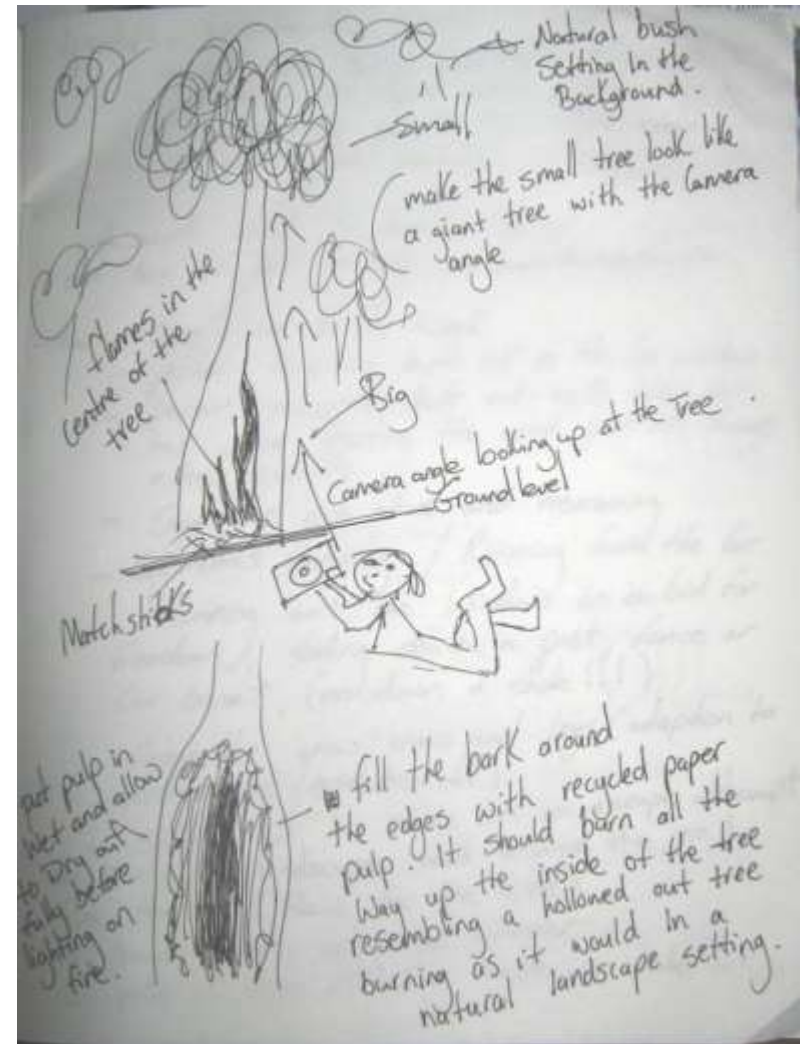 Natural bush
Setting In the
Background.
Small
make the small tree look like
a giant tree with the Camera
angle
flames in the
centre of the
tree
Big
Camera angle looking up at the Tree.
Ground level
Match sticks
put pulp in
wet and allow
to Dry out
fully before
lighting on
fire.
fill the bark around
the edges with recycled paper
pulp. It should burn all the
way up the inside of the tree
resembling a hollowed out tree
burning as it would In a
natural landscape setting.